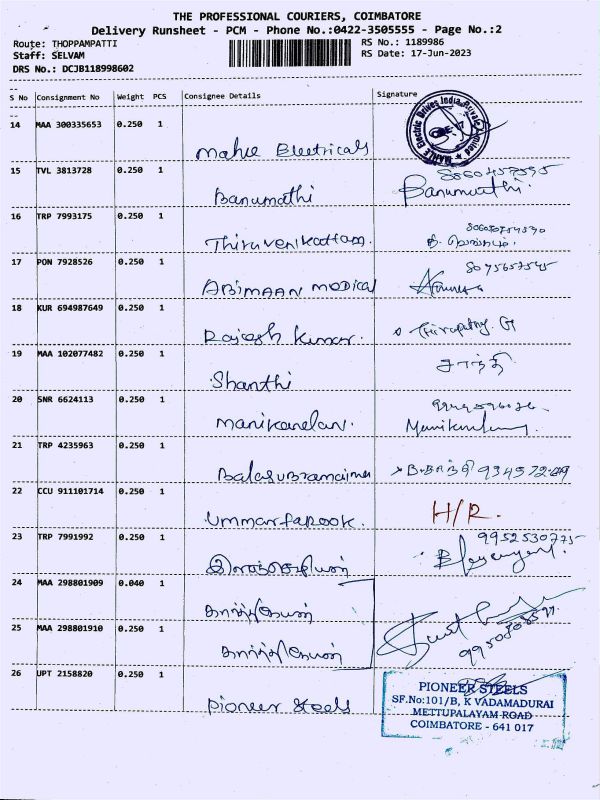 THE PROFESSIONAL COURIERS, COIMBATORE
Delivery Runsheet - PCM - Phone No.:0422-3505555 - Page No.:2
Route: THOPPAMPATTI
RS No.: 1189986
Staff: SELVAM
RS Date: 17-Jun-2023
DRS No.: DCJB118998602
S No Consignment No Weight PCS Consignee Details Signature
14 MAA 300335653 0.250 1
Mahle Electricals
MAHLE Electric Drives India Private
15 TVL 3813728 0.250 1
Banumathi Banumathi.
16 TRP 7993175 0.250 1
Thiruvenkattam.
17 PON 7928526 0.250 1
ABIMAAN MEDICAL
18 KUR 694987649 0.250 1
Rajesh Kumar. Thirupathy. G
19 MAA 102077482 0.250 1 சாந்தி
Shanthi
20 SNR 6624113 0.250 1
Manikandan.
21 TRP 4235963 0.250 1
22 CCU 911101714 0.250 1
Ummarfarook. H/R.
23 TRP 7991992 0.250 1 9952530775
24 MAA 298801909 0.040 1
கார்த்திகேயன்
25 MAA 298801910 0.250 1
கார்த்திகேயன்
26 UPT 2158820 0.250 1
Pioneer Steels
PIONEER STEELS
SF.No:101/B, K VADAMADURAI
METTUPALAYAM ROAD
COIMBATORE - 641 017